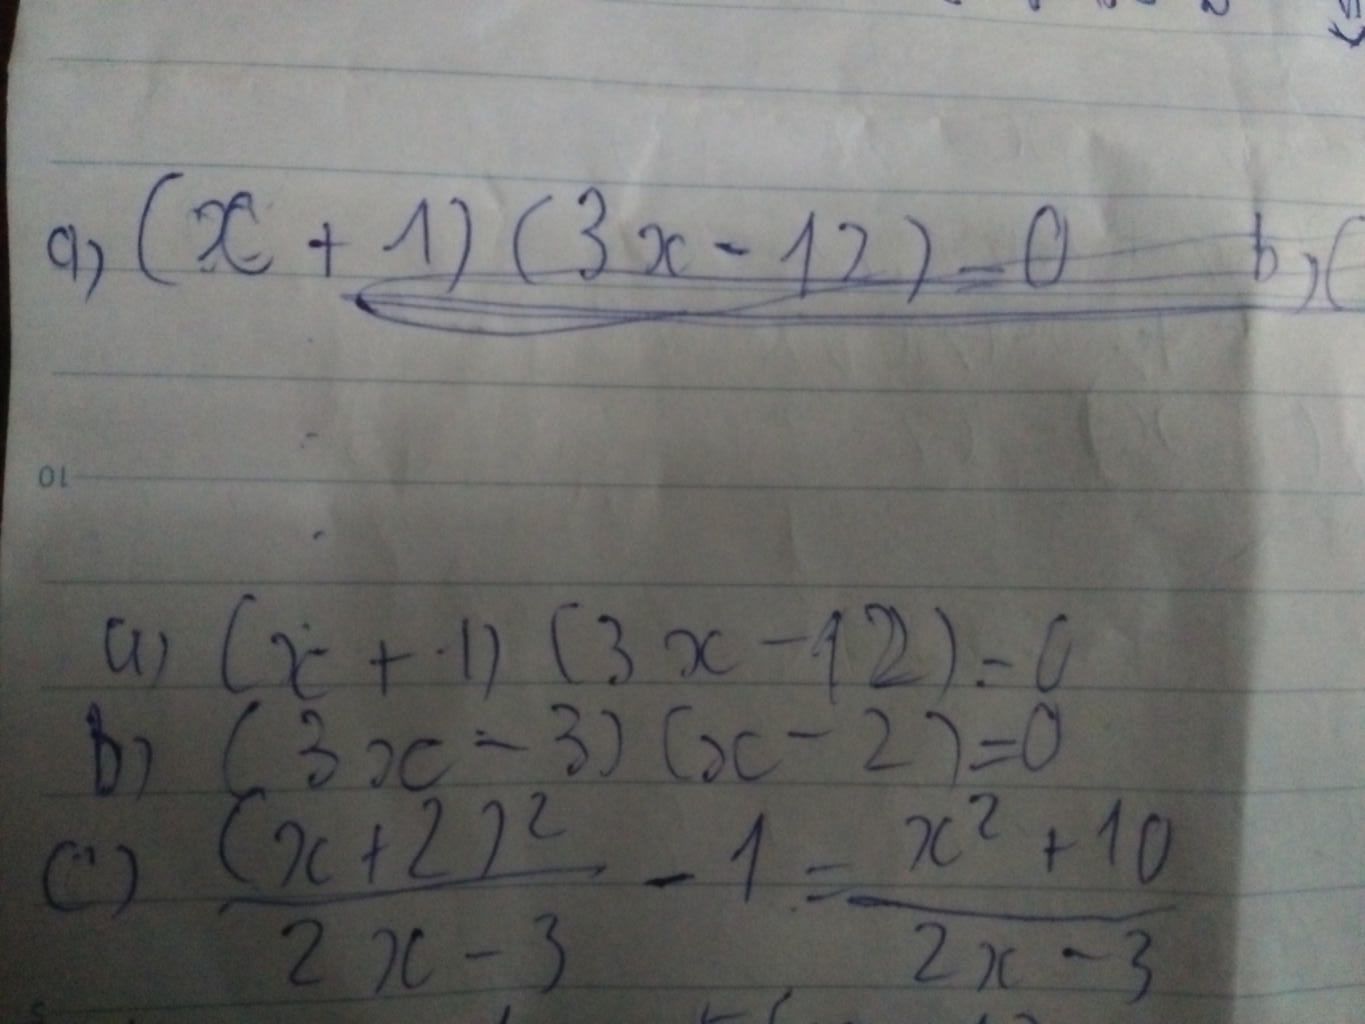 a) (x + 1) (3x - 12) = 0 b) (
01
a) (x + 1) (3x - 12) = 0
b) (3x - 3) (x - 2) = 0
c) (x+2)² / 2x - 3 - 1 = x² + 10 / 2x - 3